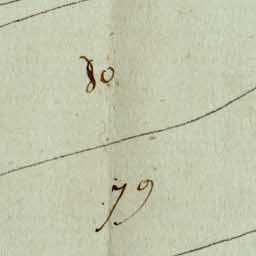 80
79